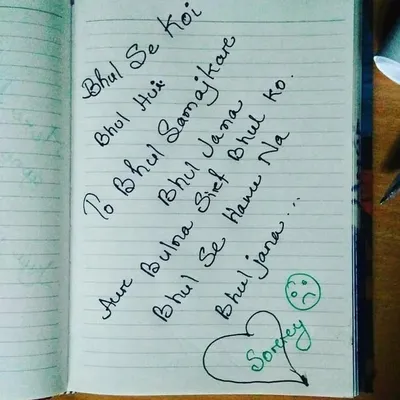 Bhul Se Koi
Bhul Hui
To Bhul Samajkare
Bhul Jana
Aur Bulna Siref Bhul ko.
Bhul Se Hame Na
Bhul jana...
Sorrey